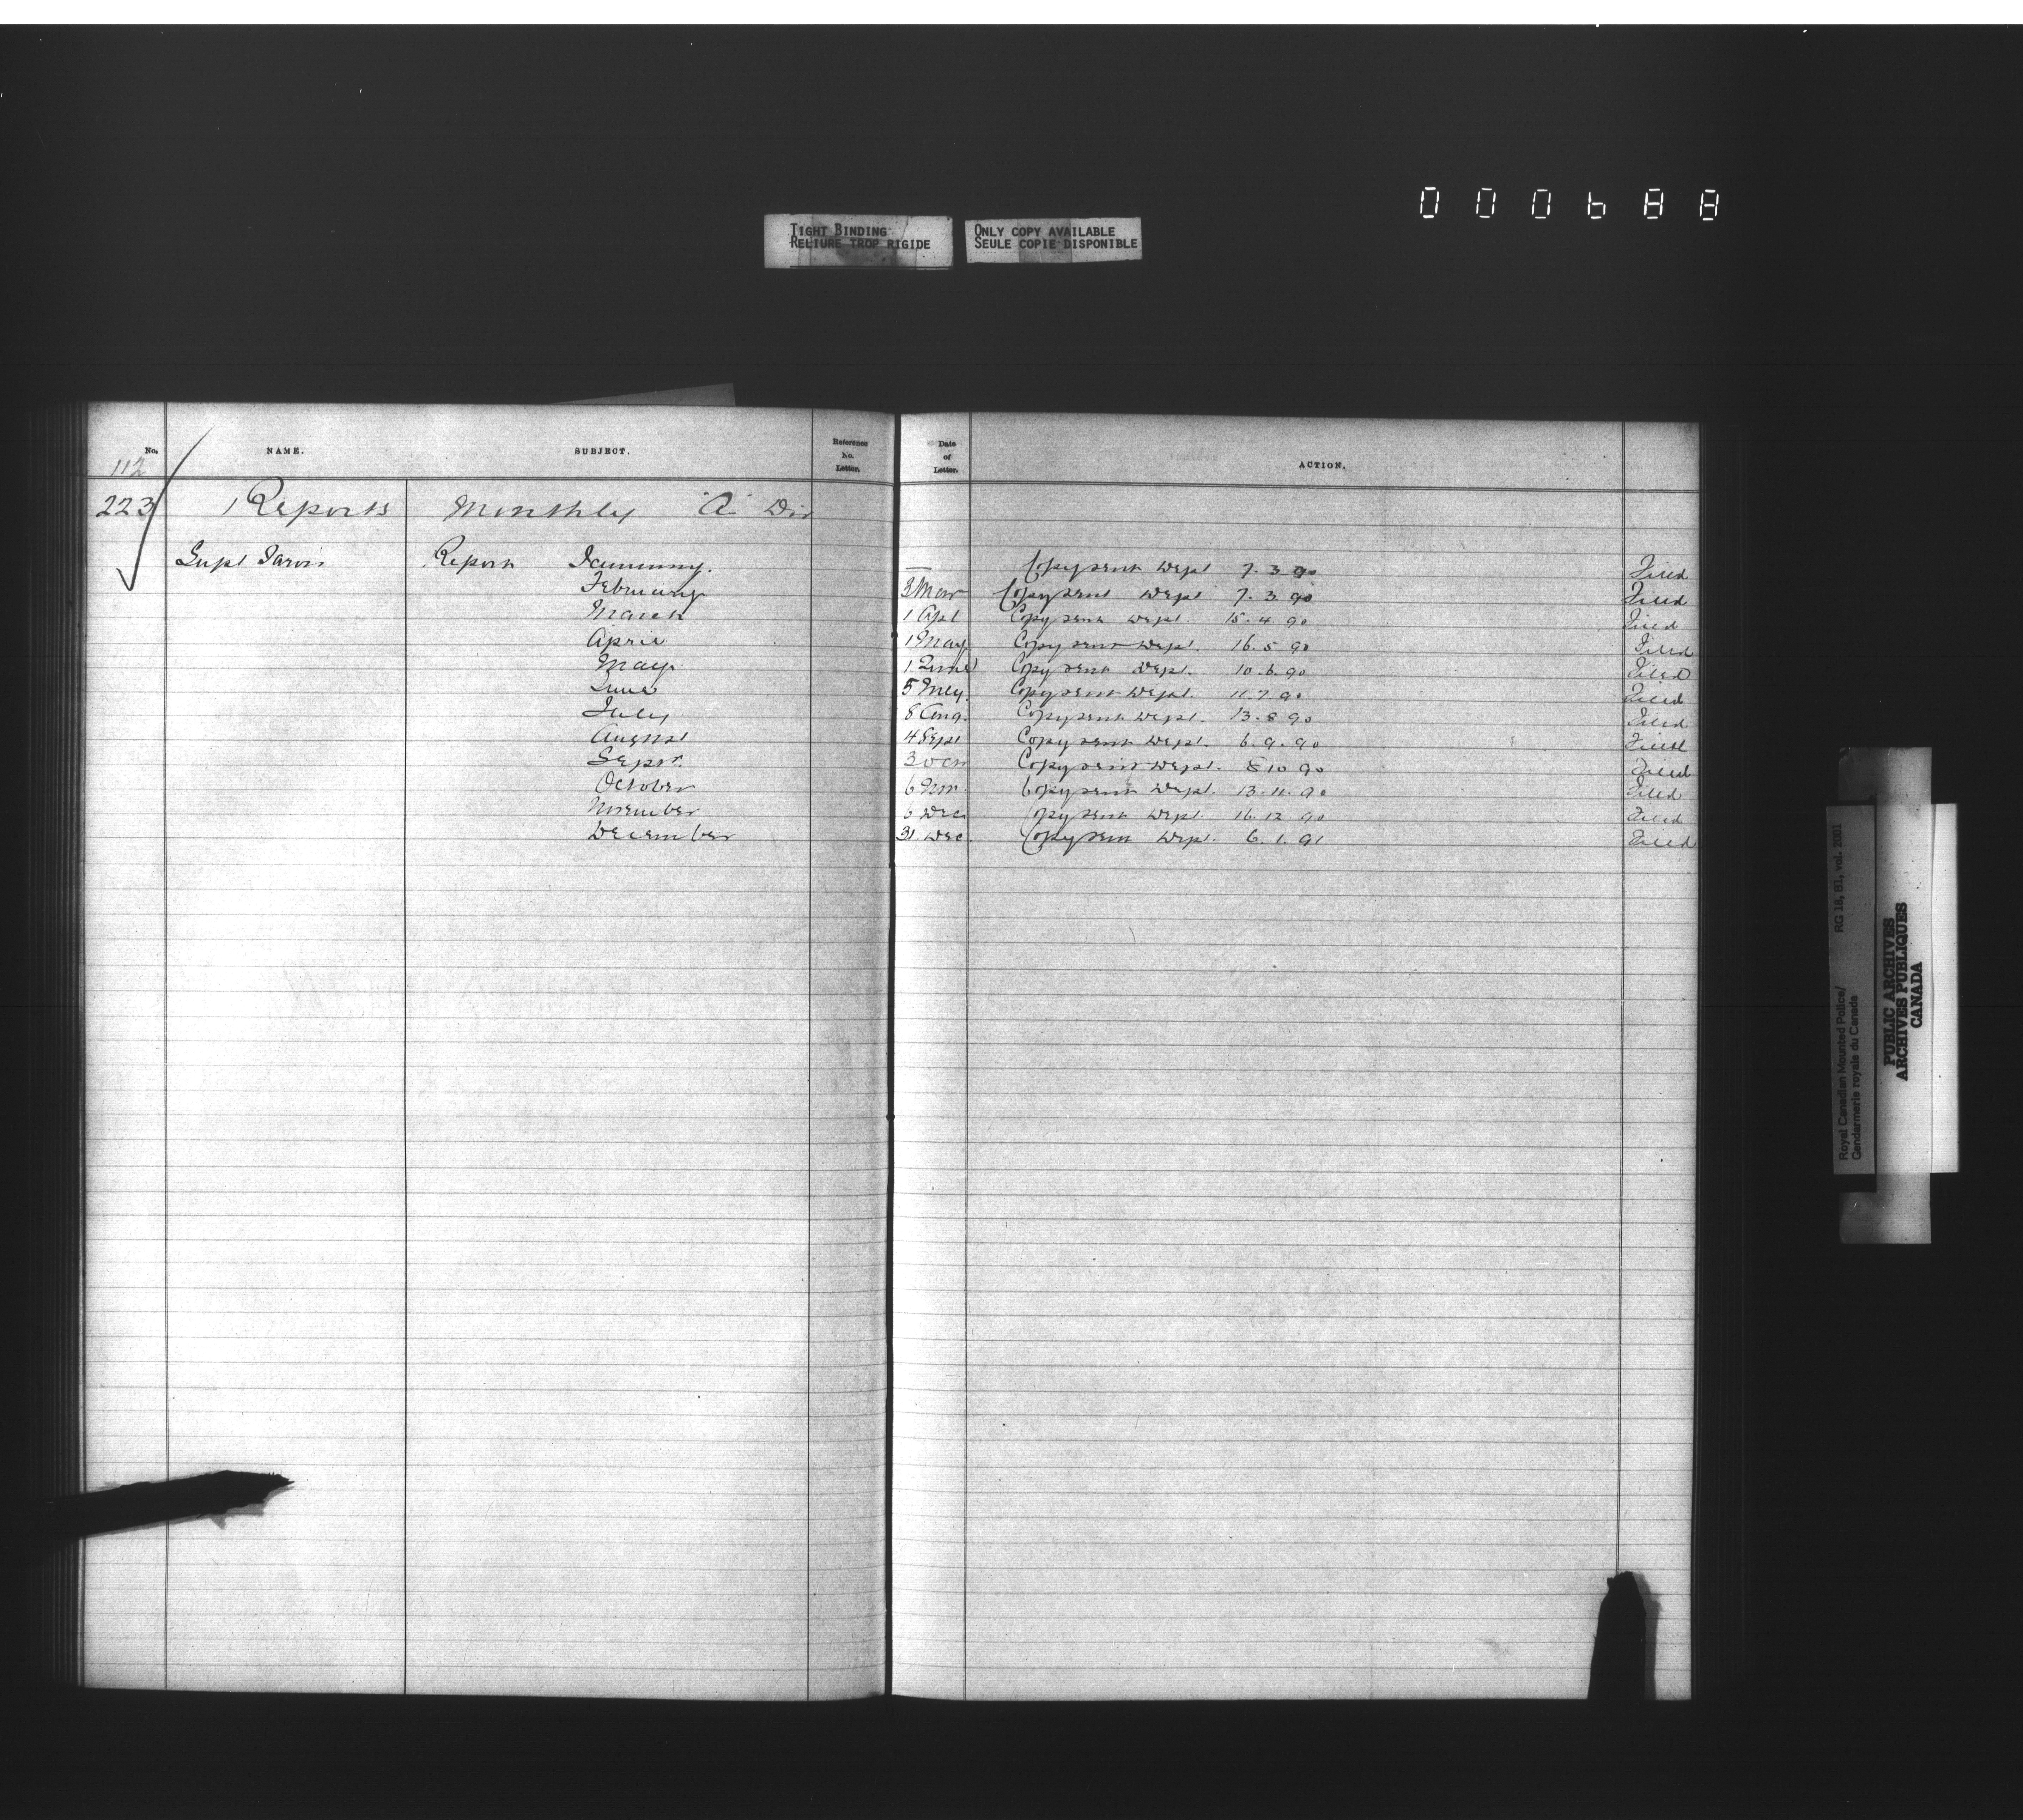 000688
TIGHT BINDING
RELIURE TROP RIGIDE
ONLY COPY AVAILABLE
SEULE COPIE DISPONIBLE
No. NAME. SUBJECT. Reference No. Letter. Date of Letter. ACTION.
112
223 Reports Monthly "A" Div
Supt Jarvis Report January. — Copy sent Dept 7.3.90 Filed
February 3 Mar Copy sent Dept 7.3.90 Filed
March 1 Apl Copy sent Dept. 15.4.90 Filed
April 1 May Copy sent Dept. 16.5.90 Filed
May 1 June Copy sent Dept. 10.6.90 Filed
June 5 July Copy sent Dept. 11.7.90 Filed
July 8 Aug. Copy sent Dept. 13.8.90 Filed
August 4 Sept Copy sent Dept. 6.9.90 Filed
Sepr. 3 Oct Copy sent Dept. 8 10 90 Filed
October 6 Nov. Copy sent Dept. 13.11.90 Filed
November 6 Dec Copy sent Dept. 16.12.90 Filed
December 31 Dec. Copy sent Dept. 6.1.91 Filed
Royal Canadian Mounted Police/
Gendarmerie royale du Canada
RG 18, B1, vol. 2001
PUBLIC ARCHIVES
ARCHIVES PUBLIQUES
CANADA